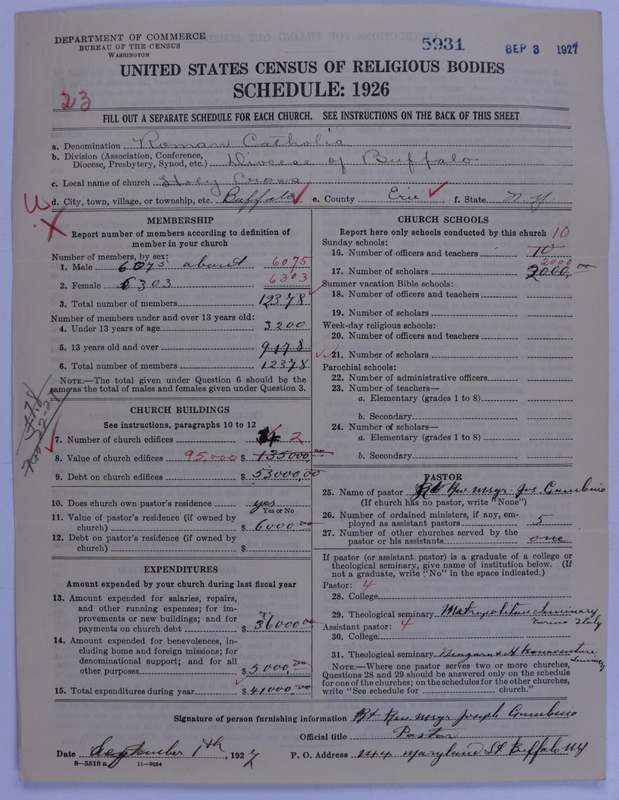 DEPARTMENT OF COMMERCE
BUREAU OF THE CENSUS
WASHINGTON
5931
SEP 3 1927
UNITED STATES CENSUS OF RELIGIOUS BODIES
SCHEDULE: 1926
23
FILL OUT A SEPARATE SCHEDULE FOR EACH CHURCH. SEE INSTRUCTIONS ON THE BACK OF THIS SHEET
a. Denomination Roman Catholic
b. Division (Association, Conference, Diocese, Presbytery, Synod, etc.) Diocese of Buffalo
c. Local name of church Holy Cross
d. City, town, village, or township, etc. Buffalo e. County Erie f. State N. Y.
MEMBERSHIP
Report number of members according to definition of
member in your church
Number of members, by sex:
1. Male 6075 about 6075
2. Female 6303 6303
3. Total number of members 12378
Number of members under and over 13 years old:
4. Under 13 years of age 3200
5. 13 years old and over 9178
6. Total number of members 12378
NOTE.—The total given under Question 6 should be the
same as the total of males and females given under Question 3.
CHURCH BUILDINGS
See instructions, paragraphs 10 to 12
7. Number of church edifices 2
8. Value of church edifices 95,000 $ 135000
9. Debt on church edifices $ 53000,00
10. Does church own pastor's residence yes
Yes or No
11. Value of pastor's residence (if owned by
church) $ 6000 00
12. Debt on pastor's residence (if owned by
church) $
EXPENDITURES
Amount expended by your church during last fiscal year
13. Amount expended for salaries, repairs,
and other running expenses; for im-
provements or new buildings; and for
payments on church debt $ 36000 00
14. Amount expended for benevolences, in-
cluding home and foreign missions; for
denominational support; and for all
other purposes $ 5000 00
15. Total expenditures during year $ 41000,00
CHURCH SCHOOLS
Report here only schools conducted by this church
Sunday schools: 10
16. Number of officers and teachers 10
2000
17. Number of scholars 2000,00
Summer vacation Bible schools:
18. Number of officers and teachers
19. Number of scholars
Week-day religious schools:
20. Number of officers and teachers
21. Number of scholars
Parochial schools:
22. Number of administrative officers
23. Number of teachers—
a. Elementary (grades 1 to 8)
b. Secondary
24. Number of scholars—
a. Elementary (grades 1 to 8)
b. Secondary
PASTOR
25. Name of pastor Rt Rev Msgr Jos Gambino
(If church has no pastor, write "None")
26. Number of ordained ministers, if any, em-
ployed as assistant pastors 5
27. Number of other churches served by the
pastor or his assistants one
If pastor (or assistant pastor) is a graduate of a college or
theological seminary, give name of institution below. (If
not a graduate, write "No" in the space indicated.)
Pastor: 4
28. College
29. Theological seminary Metropolitan Seminary
Torino Italy
Assistant pastor: 4
30. College
31. Theological seminary Niagara & St Bonaventure
Seminary
NOTE.—Where one pastor serves two or more churches,
Questions 28 and 29 should be answered only on the schedule
for one of the churches; on the schedules for the other churches,
write "See schedule for church."
Signature of person furnishing information Rt Rev Msgr Joseph Gambino
Official title Pastor
Date September 1th, 1927
P. O. Address Maryland St Buffalo NY
8—5518 a 11—9034